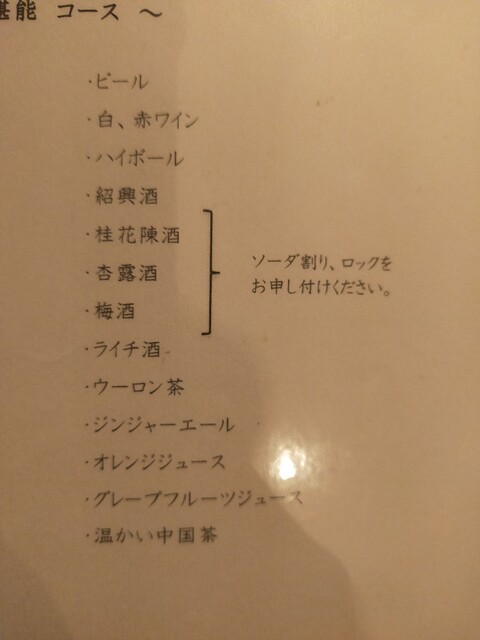 堪能 コース ～
・ビール
・白、赤ワイン
・ハイボール
・紹興酒
・桂花陳酒
・杏露酒
・梅酒
・ライチ酒
ソーダ割り、ロックを
お申し付けください。
・ウーロン茶
・ジンジャーエール
・オレンジジュース
・グレープフルーツジュース
・温かい中国茶